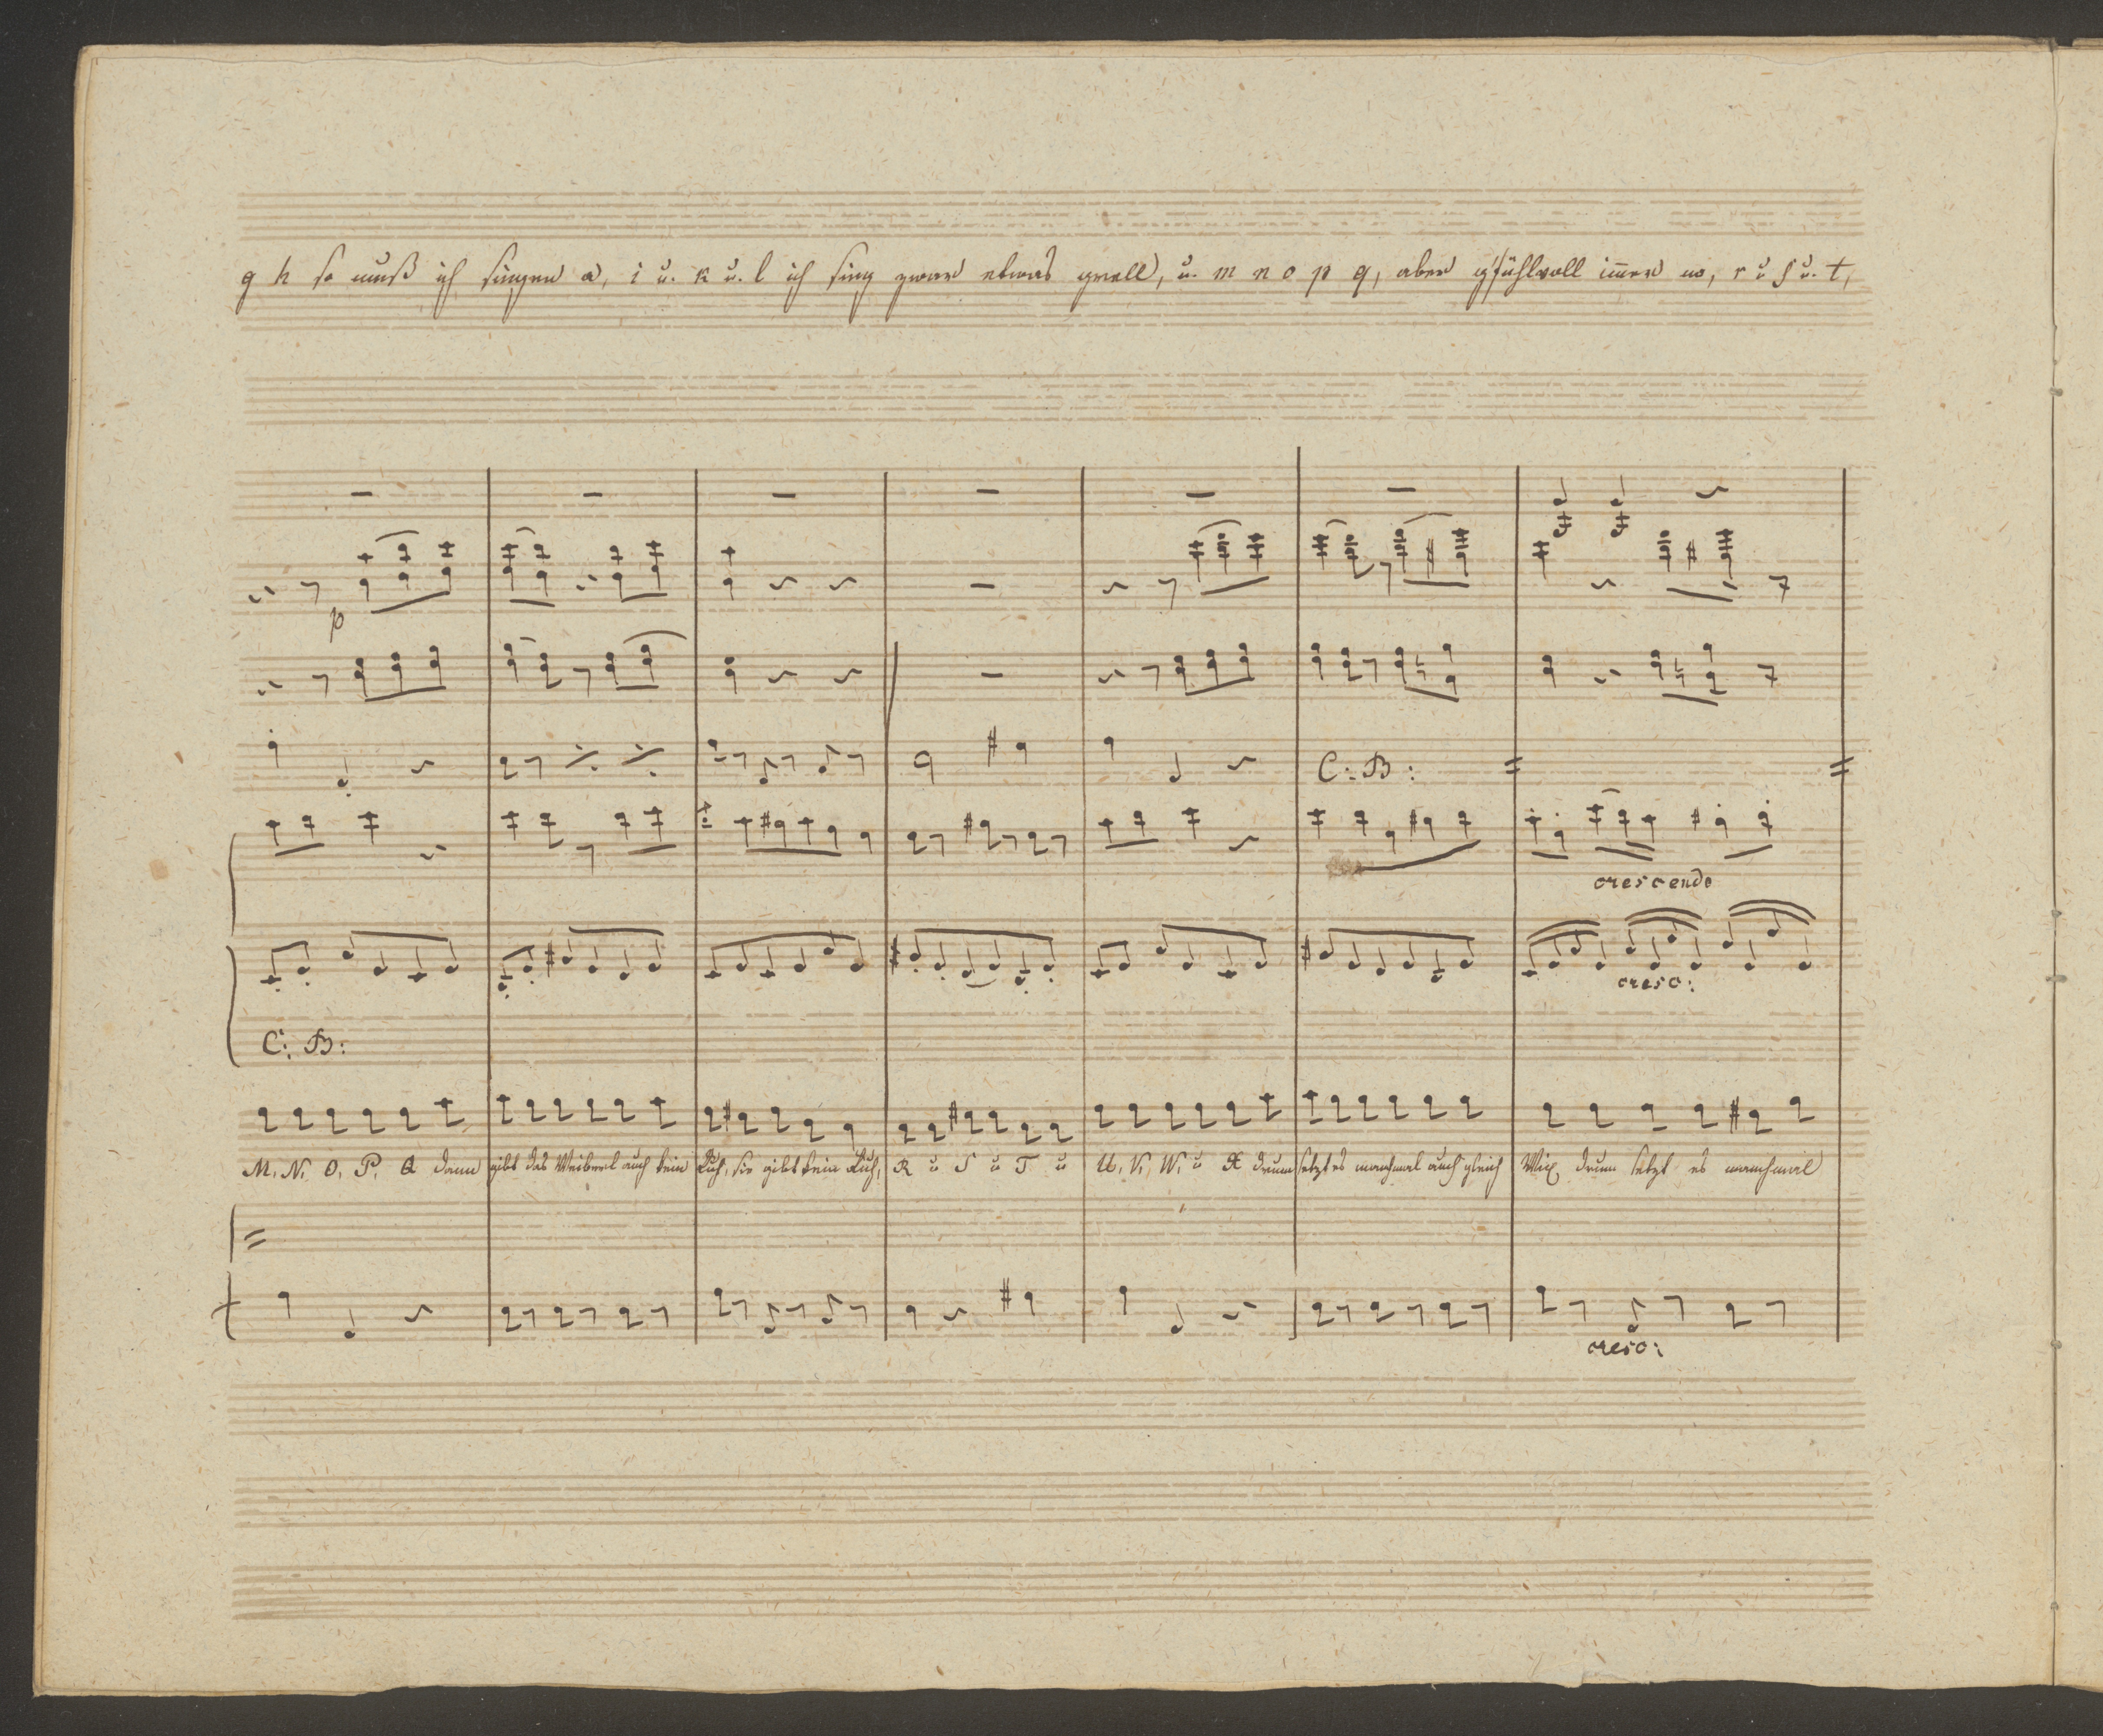 g h so muß ich singen a, i u. k u. l ich sing zwar etwas grell, u. m n o p q, aber g'fühlvoll im̄er no, r u s u. t,
p
C: B:
crescendo
cresc:
C: B:
M, N, O, P, Q dann gibt das Weiberl auch kein Ruh, sie gibt kein Ruh, R u S u T u U, V, W, u X drum setzt es manchmal auch gleich Wix drum setzt es manchmal
cresc: